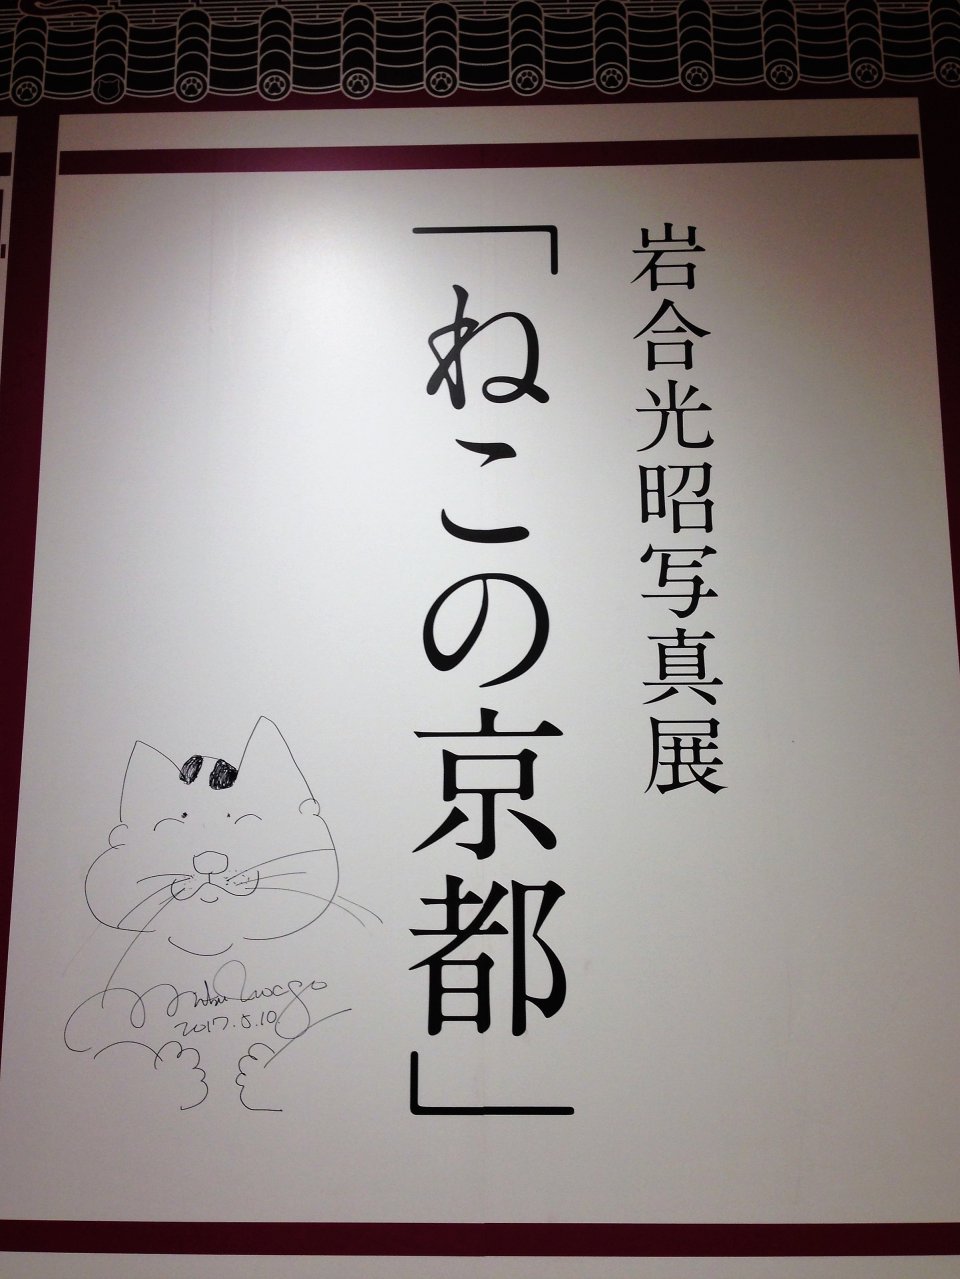 岩合光昭写真展
「ねこの京都」
Mitsu Iwago
2017.5.10